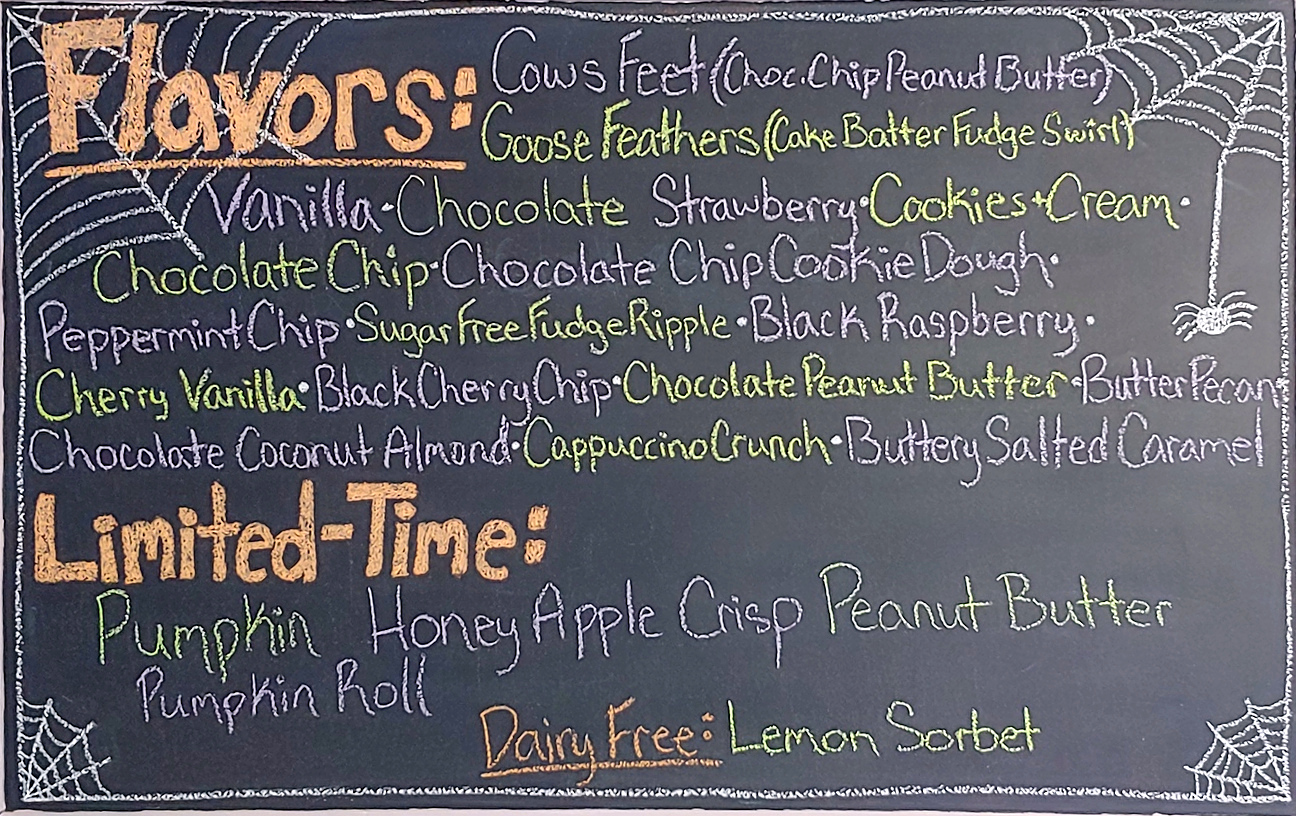 Flavors: Cows Feet (Choc. Chip Peanut Butter)
Goose Feathers (Cake Batter Fudge Swirl)
Vanilla · Chocolate Strawberry · Cookies + Cream ·
Chocolate Chip · Chocolate Chip Cookie Dough ·
Peppermint Chip · Sugar Free Fudge Ripple · Black Raspberry ·
Cherry Vanilla · Black Cherry Chip · Chocolate Peanut Butter · Butter Pecan
Chocolate Coconut Almond · Cappuccino Crunch · Buttery Salted Caramel
Limited-Time:
Pumpkin Honey Apple Crisp Peanut Butter
Pumpkin Roll
Dairy Free: Lemon Sorbet